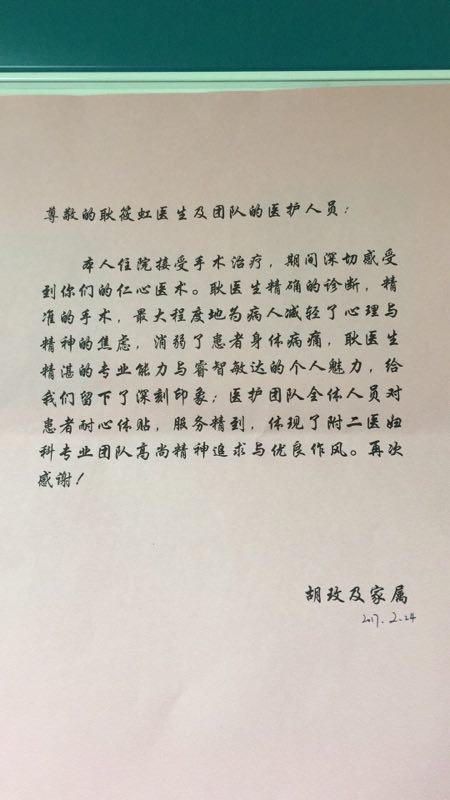 尊敬的耿筱虹医生及团队的医护人员：
本人住院接受手术治疗，期间深切感受
到你们的仁心医术。耿医生精确的诊断，精
准的手术，最大程度地为病人减轻了心理与
精神的焦虑，消弱了患者身体病痛，耿医生
精湛的专业能力与睿智敏达的个人魅力，给
我们留下了深刻印象；医护团队全体人员对
患者耐心体贴，服务精到，体现了附二医妇
科专业团队高尚精神追求与优良作风。再次
感谢！
胡玫及家属
2017.2.24